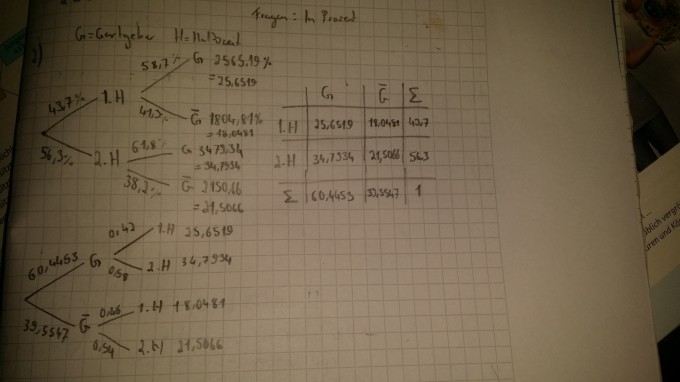 Fragen: In Prozent
G=Gastgeber H=Halbzeit
2)
43,7% 1.H 58,7% G 2565,19%
= 25,6519
41,3% G̅ 1804,81%
= 18,0481
56,3% 2.H 61,8% G 3479,34
= 34,7934
38,2% G̅ 2150,66
= 21,5066
G G̅ Σ
1.H 25,6519 18,0481 43,7
2.H 34,7934 21,5066 56,3
Σ 60,4453 39,5547 1
60,4453 G 0,42 1.H 25,6519
0,58 2.H 34,7934
39,5547 G̅ 0,46 1.H 18,0481
0,54 2.H 21,5066
üblich vergrö